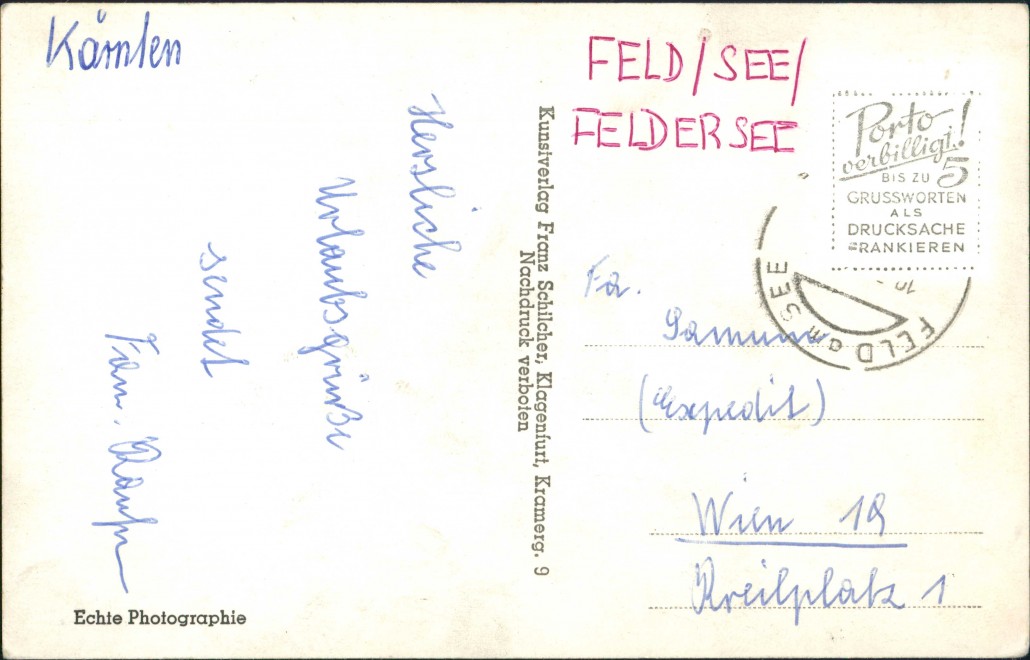 Kärnten
Herzliche
Urlaubsgrüße
sendet
Fam.
Echte Photographie
Kunstverlag Franz Schilcher, Klagenfurt, Kramerg. 9
Nachdruck verboten
FELD/SEE/
FELDERSEE
Porto
verbilligt!
BIS ZU 5
GRUSSWORTEN
ALS
DRUCKSACHE
FRANKIEREN
FELD am SEE
Fa.
(Expedit)
Wien 19
Kreilplatz 1